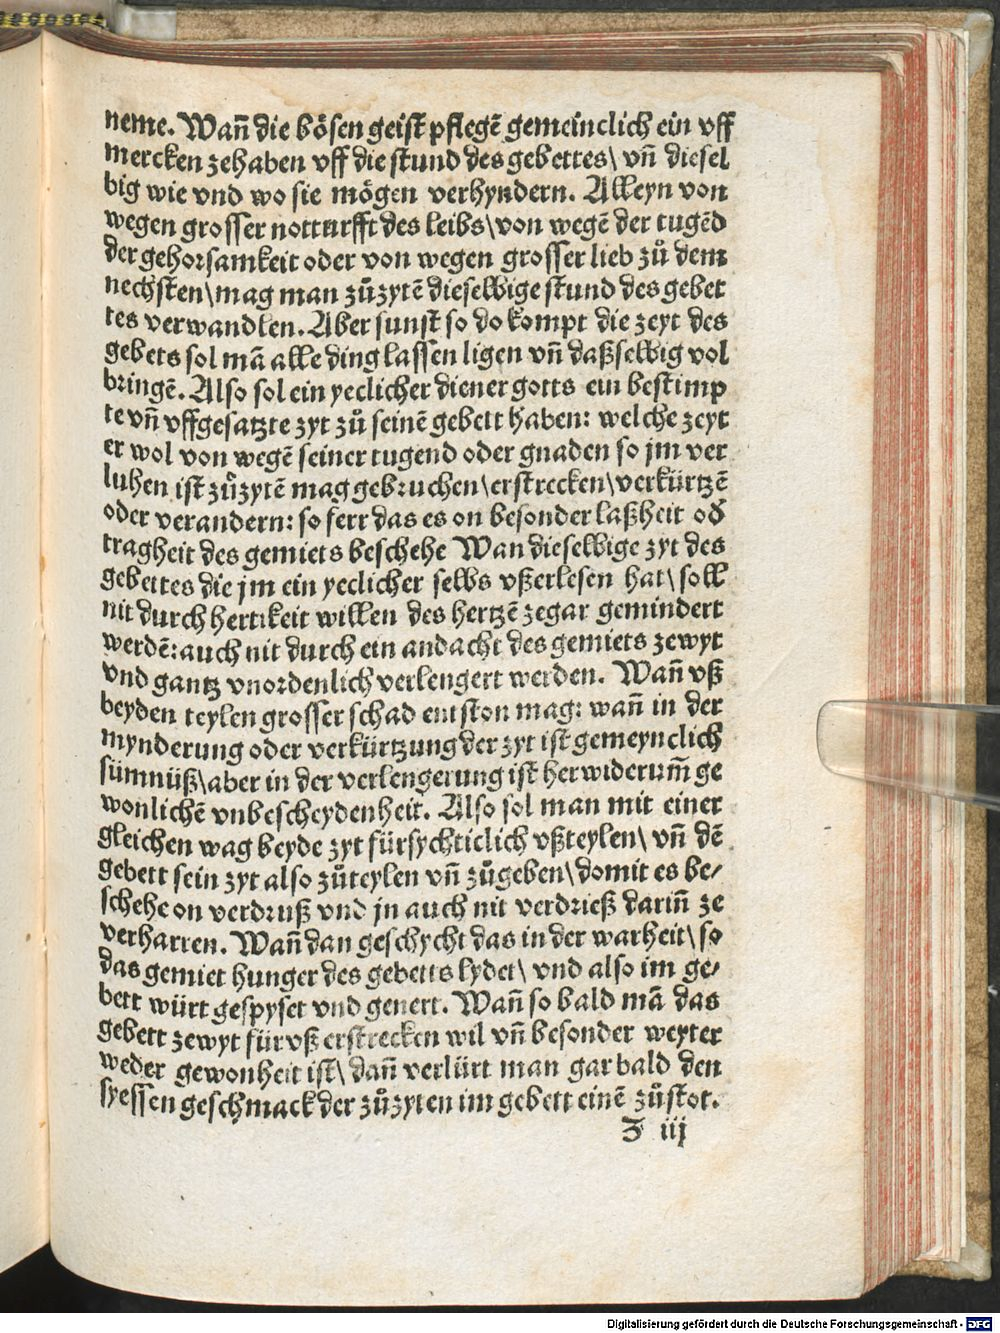 neme. Wañ die bösen geist pflegẽ gemeinclich ein vff
mercken zehaben vff die stund des gebettes\ vñ diesel
big wie vnd wo sie mögen verhyndern. Alleyn von
wegen grosser notturfft des leibs\von wegẽ der tugẽd
der gehorsamkeit oder von wegen grosser lieb zů dem
nechsten\mag man zůzytẽ dieselbige stund des gebet
tes verwandlen. Aber sunst so do kompt die zeyt des
gebets sol mã alle ding lassen ligen vñ daßselbig vol
bringẽ. Also sol ein yeclicher diener gotts ein bestimp
te vñ vffgesatzte zyt zů seinẽ gebett haben: welche zeyt
er wol von wegẽ seiner tugend oder gnaden so jm ver
luhen ist zůzytẽ mag gebruchen\erstrecken\verkürtzẽ
oder verandern: so ferr das es on besonder laßheit od̛
tragheit des gemiets beschehe Wan dieselbige zyt des
gebettes die jm ein yeclicher selbs vßerlesen hat\ soll
nit durch hertikeit willen des hertzẽ zegar gemindert
werdẽ: auch nit durch ein andacht des gemiets zewyt
vnd gantz vnordenlich verlengert werden. Wañ vß
beyden teylen grosser schad entston mag: wañ in der
mynderung oder verkürtzung der zyt ist gemeynclich
sümnüß\aber in der verlengerung ist herwiderum̃ ge
wonlichẽ vnbescheydenheit. Also sol man mit einer
gleichen wag beyde zyt fürsychticlich vßteylen\ vñ dẽ
gebett sein zyt also zůteylen vñ zůgeben\domit es be/
schehe on verdruß vnd jn auch nit verdrieß dariñ ze
verharren. Wañ dan geschycht das in der warheit\ so
das gemiet hunger des gebetts lydet\ vnd also im ge/
bett würt gespyset vnd genert. Wañ so bald mã das
gebett zewyt für vß erstrecken wil vñ besonder weyter
weder gewonheit ist\ dañ verlürt man gar bald den
syessen geschmack der zůzyten im gebett einẽ zůstot.
z iij
Digitalisierung gefördert durch die Deutsche Forschungsgemeinschaft - DFG